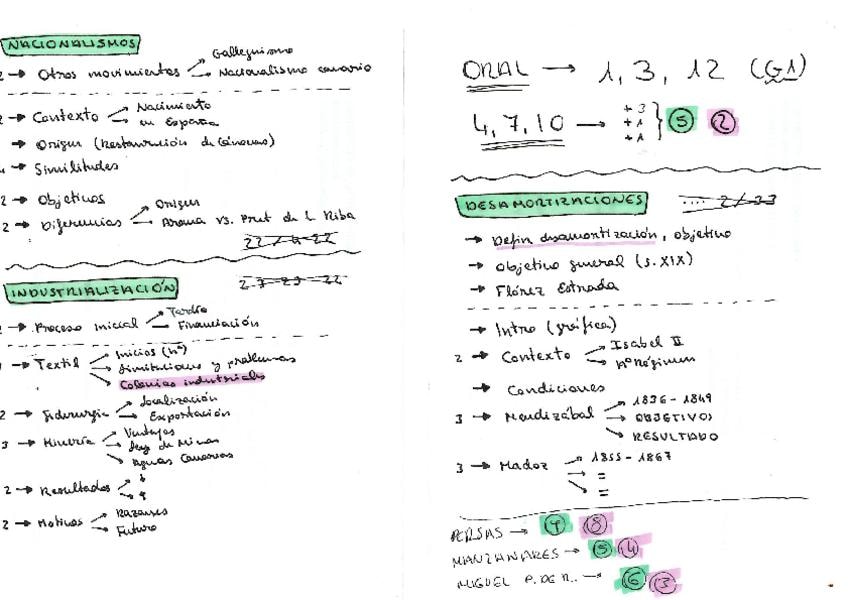 NACIONALISMOS
2 → Otros movimientos → Galleguismo
→ Nacionalismo canario
2 → Contexto → Nacimiento
→ en España
→ Origen (Restauración de Cánovas)
→ Similitudes
2 → Objetivos
2 → Diferencias → Origen
→ Arana vs. Prat de l Riba
INDUSTRIALIZACIÓN
2 → Proceso inicial → Tardío
→ Financiación
→ Textil → Inicios (nº)
→ Limitaciones y problemas
→ Colonias industriales
2 → Siderurgia → Localización
→ Exportación
3 → Minería → Ventajas
→ Ley de Minas
→ Aguas Canarias
2 → Resultados → ↓
→ ↑
2 → Motivos → Razones
→ Futuro
ORAL → 1, 3, 12 (G1)
4, 7, 10 → +3
+1
+1
} 5 2
DESAMORTIZACIONES
→ Defin desamortización, objetivo
→ Objetivo general (s. XIX)
→ Flórez Estrada
→ Intro (gráfica)
2 → Contexto → Isabel II
→ Aº Régimen
→ Condiciones
3 → Mendizábal → 1836 - 1849
→ OBJETIVOS
→ RESULTADO
3 → Madoz → 1855 - 1867
→ =
→ =
PERSAS → 9 8
MANZANARES → 5 4
MIGUEL P. DE R. → 6 3